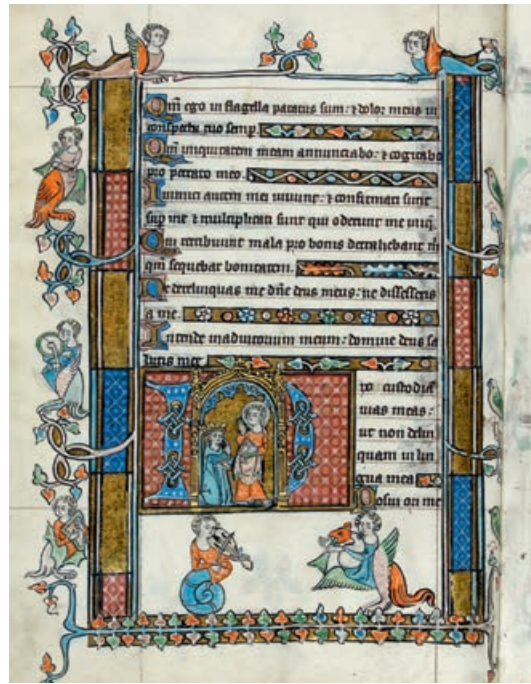 Qm̄ ego in flagella paratus sum: ⁊ dolor meus in
conspectu tuo semp.
Qm̄ iniquitatem meam annunciabo: ⁊ cogitabo
pro peccato meo.
Inimici autem mei uiuunt: ⁊ confirmati sunt
sup me ⁊ multiplicati sunt qui oderunt me iniq̄.
Qui retribuunt mala pro bonis detrahebant m̄
qm̄ sequebar bonitatem.
Ne derelinquas me dn̄e deus meus: ne discesseris
a me.
Intende in adiutorium meum: domine deus sa
lutis mee.
D
xi: custodiā
uias meas:
ut non delin
quam in lin
gua mea
Posui ori me